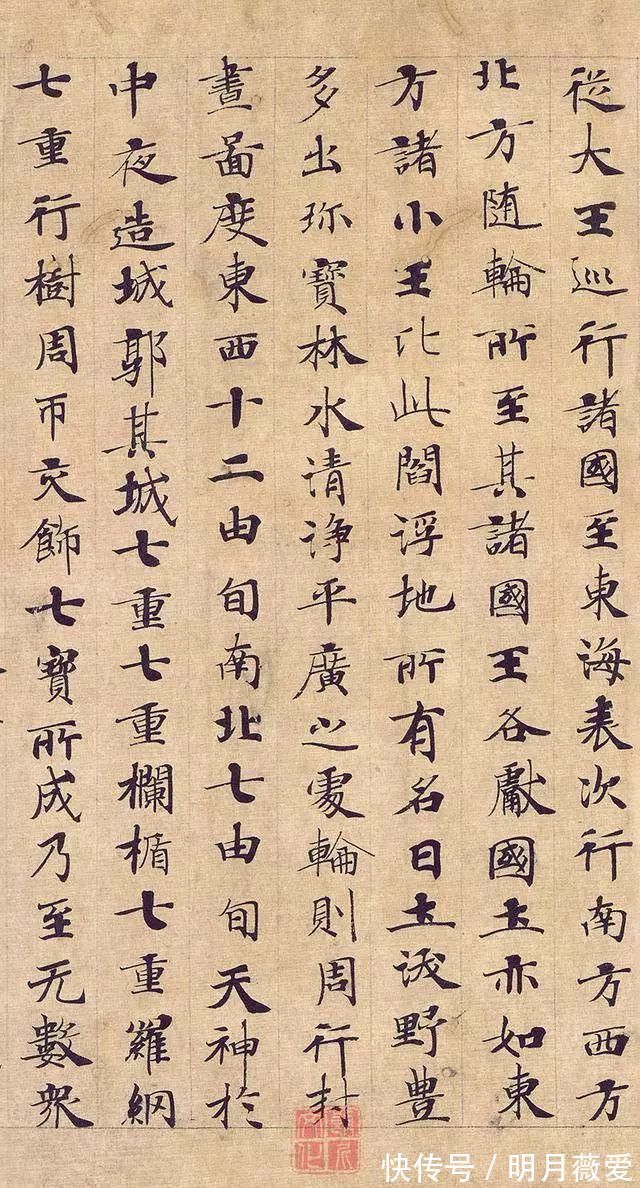 從大王巡行諸國至東海表次行南方西方
北方随輪所至其諸國王各獻國圡亦如東
方諸小王比此閻浮地所有名曰圡沃野豊
多出珎寶林水清淨平廣之處輪則周行封
畫啚度東西十二由旬南北七由旬天神於
中夜造城郭其城七重七重欄楯七重羅網
七重行樹周帀交飾七寶所成乃至无數衆
快传号／明月薇爱